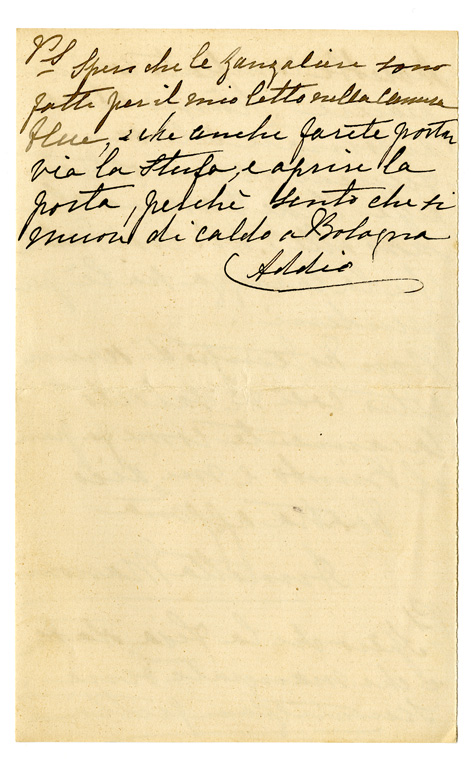 PS Spero che le Zanzaliere sono
fatte per il mio letto nella Camera
blue, e che anche farete portar
via la Stufa, e aprire la
porta, perchè sento che si
muore di caldo a Bologna
Addio